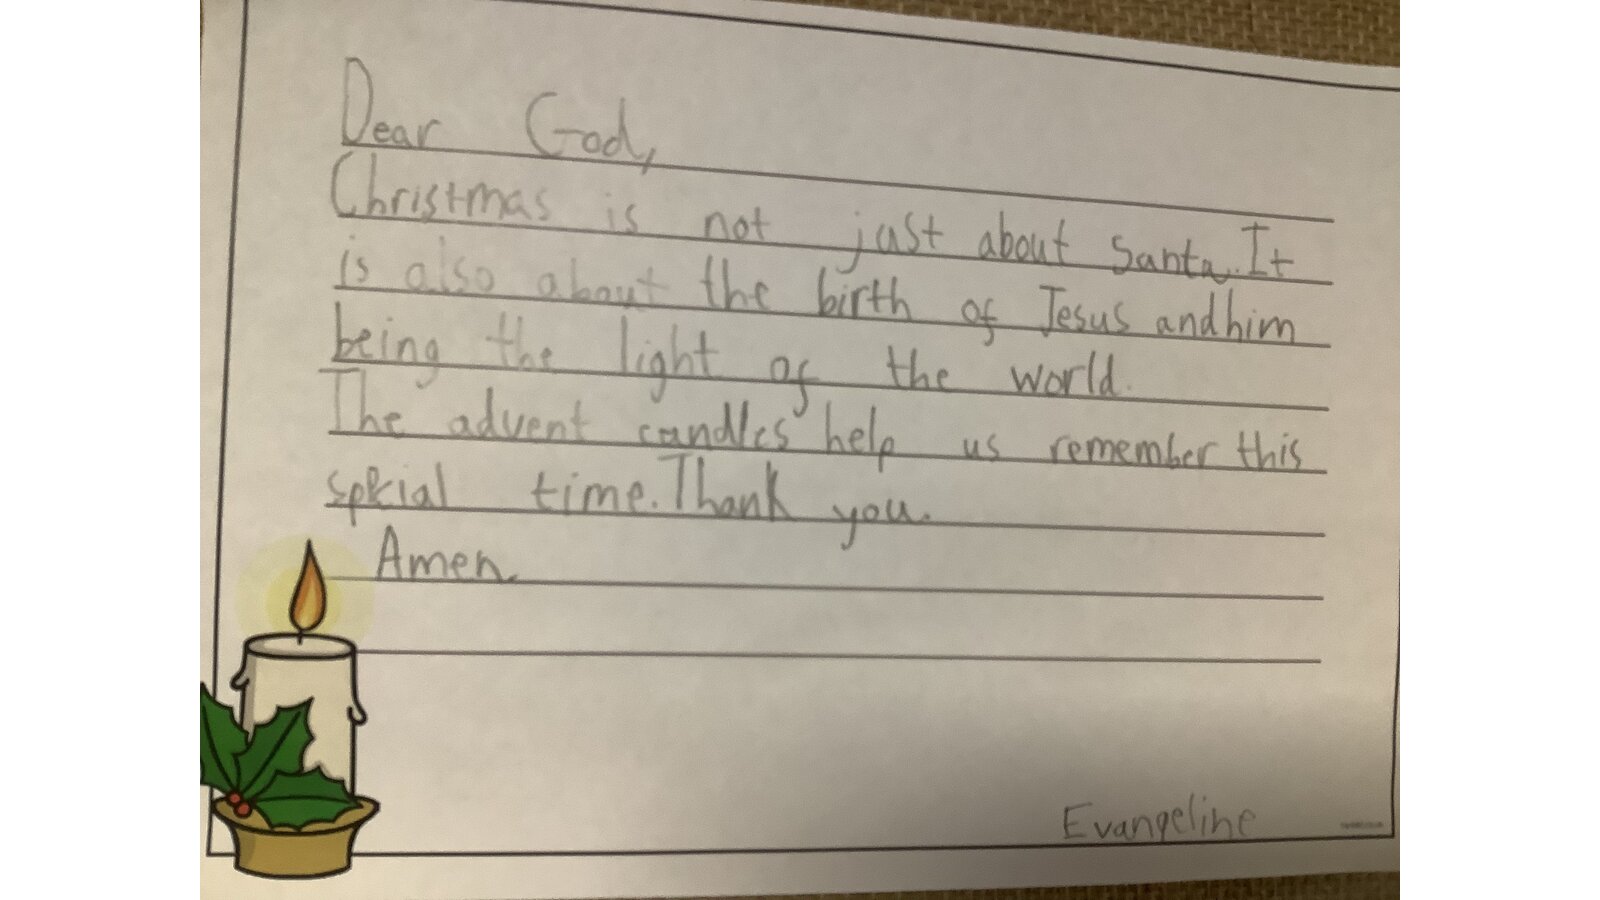 Dear God,
Christmas is not just about Santa. It
is also about the birth of Jesus and him
being the light of the world.
The advent candles help us remember this
special time. Thank you.
Amen.
Evangeline